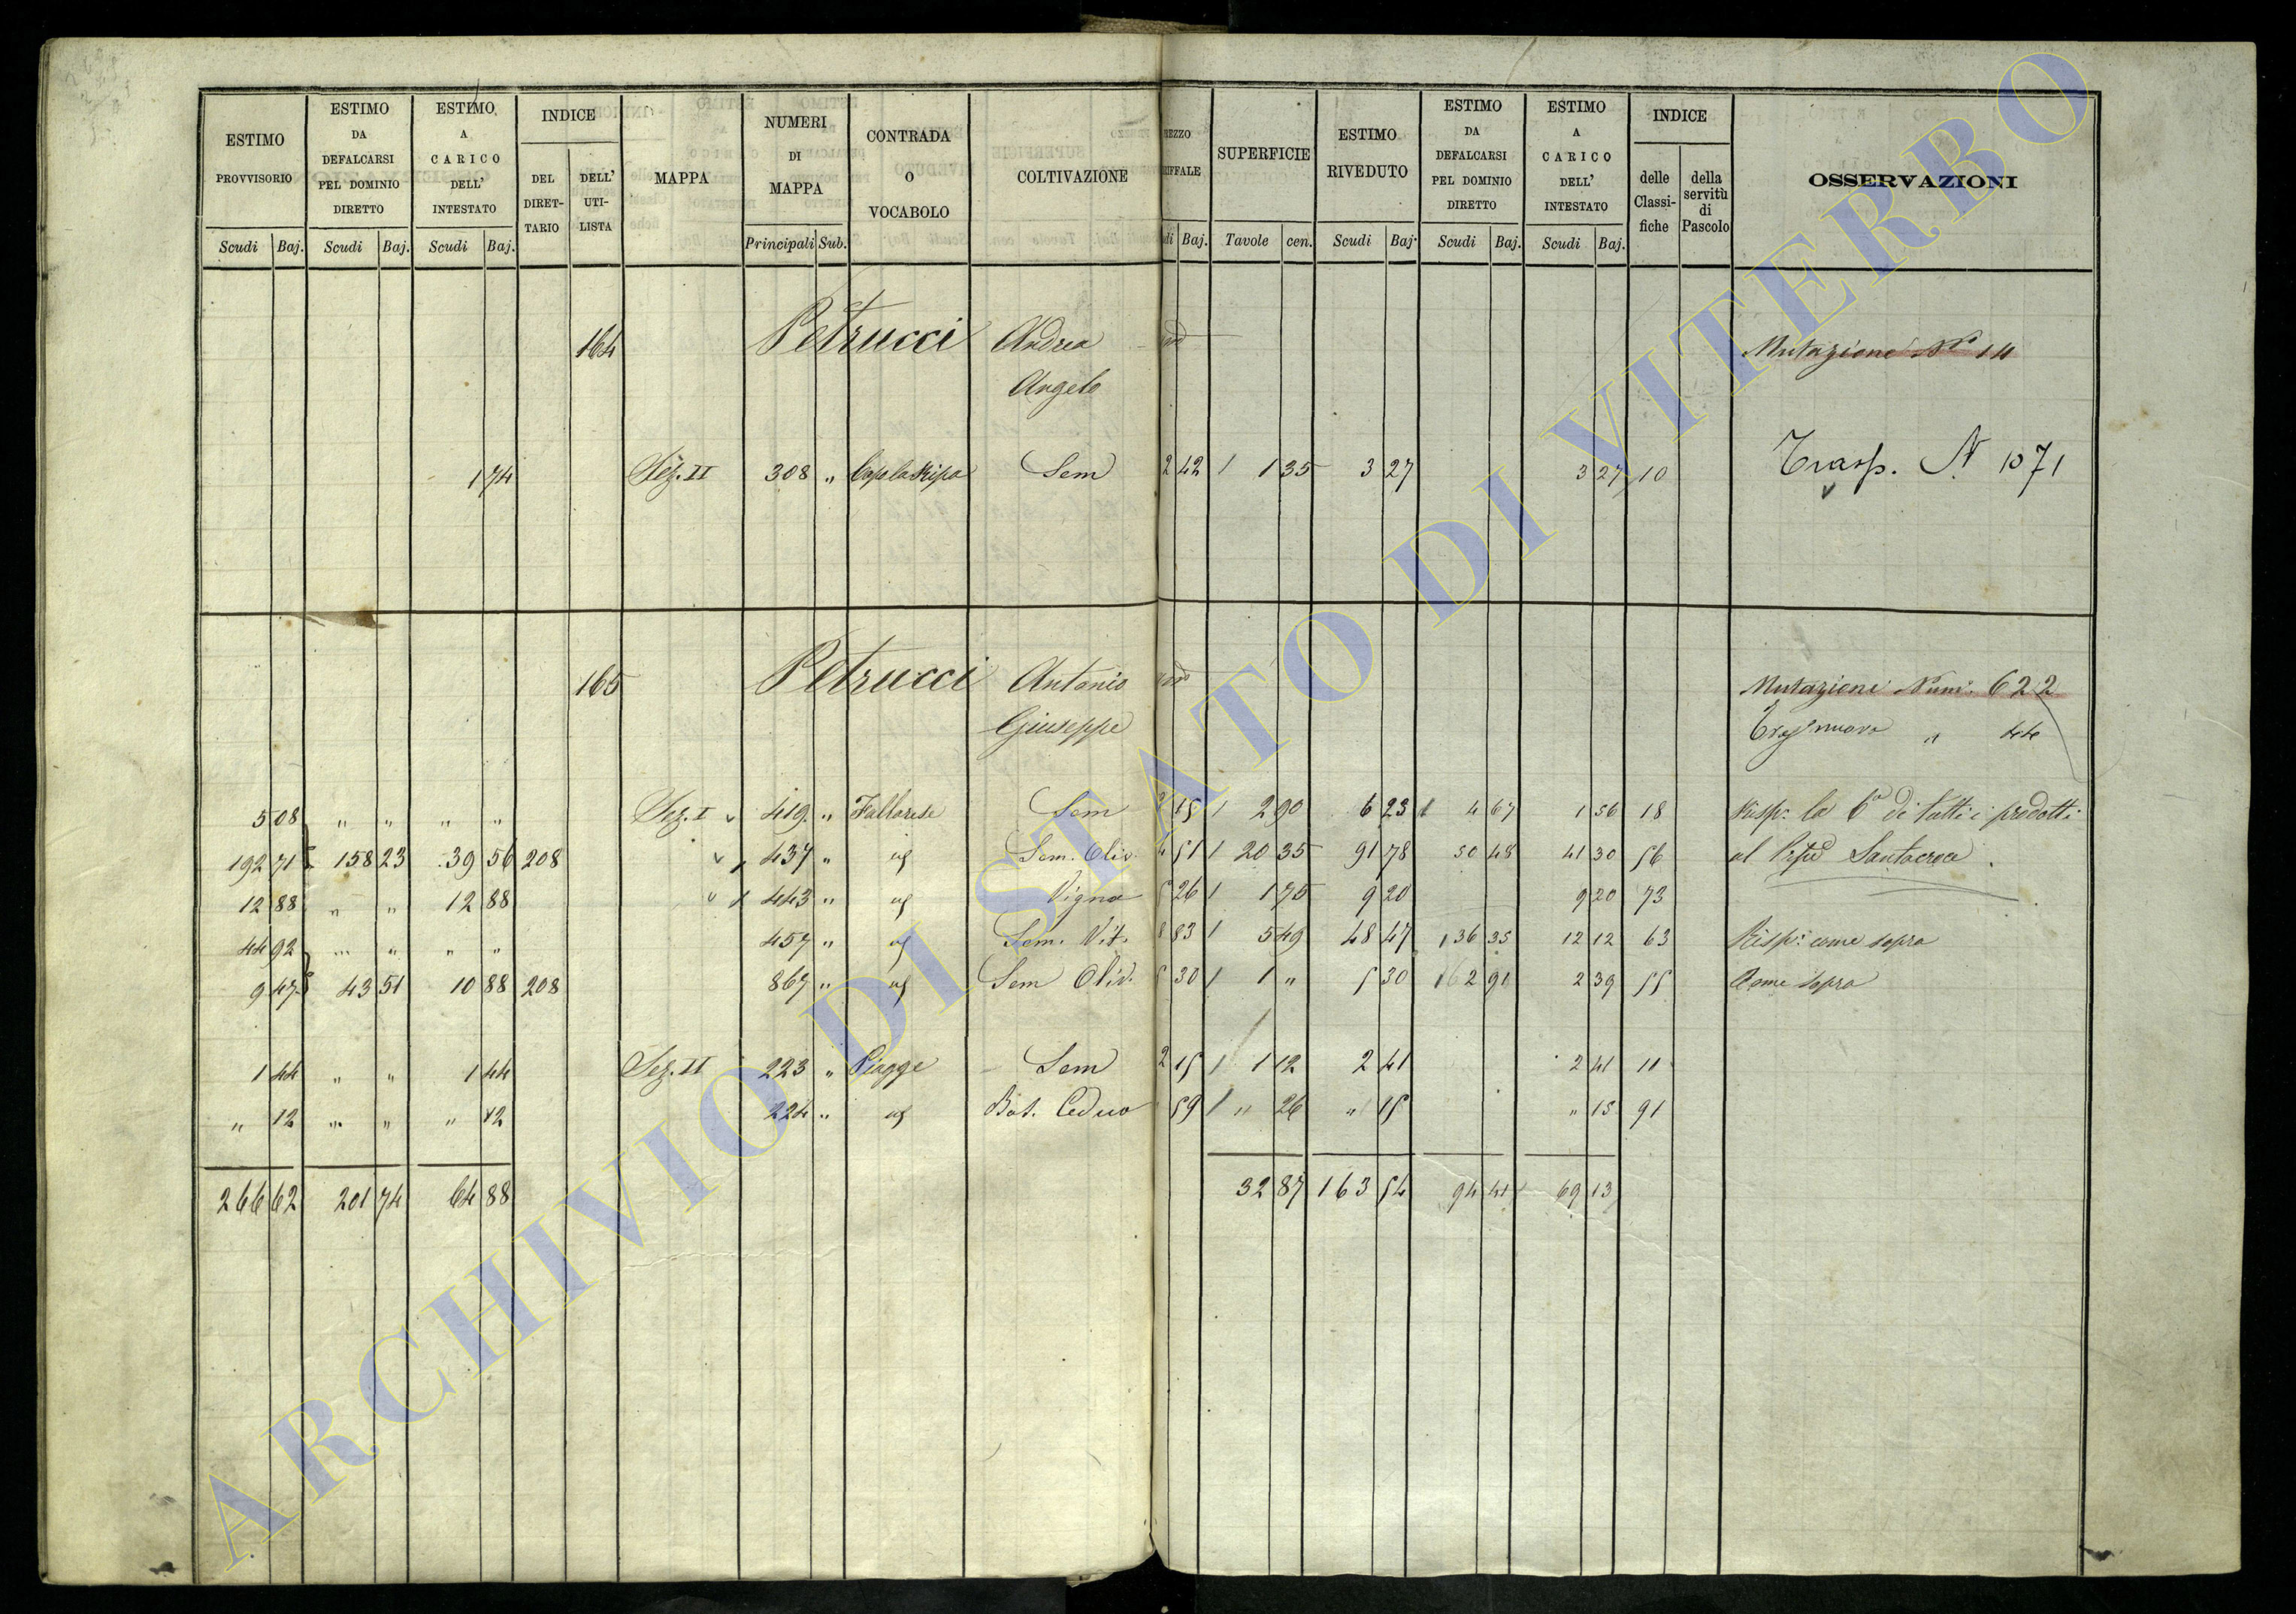 ESTIMO PROVVISORIO | ESTIMO DA DEFALCARSI PEL DOMINIO DIRETTO | ESTIMO A CARICO DELL' INTESTATO | INDICE | MAPPA | NUMERI DI MAPPA | CONTRADA O VOCABOLO | COLTIVAZIONE | REZZO RIFFALE | SUPERFICIE | ESTIMO RIVEDUTO | ESTIMO DA DEFALCARSI PEL DOMINIO DIRETTO | ESTIMO A CARICO DELL' INTESTATO | INDICE | OSSERVAZIONI
DEL DIRET-TARIO | DELL' UTI-LISTA | delle Classi-fiche | della servitù di Pascolo
Scudi Baj. | Scudi Baj. | Scudi Baj. | Principali Sub. | di Baj. | Tavole cen. | Scudi Baj. | Scudi Baj. | Scudi Baj.
164 Petrucci Andrea Mutazione N° 14
Angelo
1 74 Sez. II 308 " Capo la Ripa Sem 2 42 1 35 3 27 3 27 10 Trasp. N. 1071
165 Petrucci Antonio Mutazioni Num. 622
Giuseppe nuova " 44
5 08 " " " " Sez. I 419 " Fallarese Sem 15 2 90 6 23 4 67 1 56 18 Risp. la 6a di tutti i prodotti
192 71 158 23 39 56 208 437 " Sem. Oliv. 51 20 35 91 78 50 48 41 30 56 al Santacroce.
12 88 " " 12 88 443 " Vigna 5 26 1 75 9 20 9 20 73
44 92 " " " " 457 " Sem. Vit. 8 83 5 49 48 47 36 35 12 12 63 Risp. come sopra
9 47 43 51 10 88 208 867 " Sem Oliv. 5 30 1 " 5 30 2 91 2 39 55 Come sopra
1 44 " " 1 44 Sez. II 223 " Piagge Sem 2 15 1 12 2 41 2 41 11
" 12 " " " 12 224 " Bos. Ceduo 59 " 26 " 15 " 15 91
266 62 201 74 64 88 32 87 163 54 94 41 69 13
ARCHIVIO DI STATO DI VITERBO